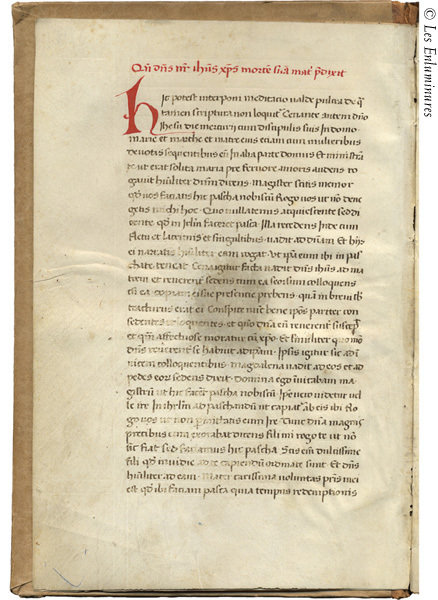 Qn̄ dn̄s nr̄ ihūs xp̄s morte sua matri p̄dixit
Hic potest interponi meditatio valde pulcra de q̄
tamen scriptura non loquitur Cenante autem dn̄o
Ihesu die mercurij cum discipulis suis in domo
marie et marthe et matre eius etiam cum mulieribus
devotis sequentibus eū in alia parte domus et ministrā
te ut erat solita maria pre fervore amoris audens ro
gavit humiliter dn̄m dicens magister sitis memor
qd̄ vos faciatis hic pascha nobiscum Rogo vos ut nō dene
getis michi hoc Quo nullatenus acquiescente sed di
cente qd̄ in Ierl̄m faceret pasca Illa recedens inde cum
fletu et lacrimis et singultibus vadit ad dn̄am Et hijs
ei narratis humiliter eam rogat ut ipsa eum ibi in pas
chate teneat Cena igitur facta vadit dn̄s ihūs ad ma
trem et reverenter sedens cum ea seorsum colloquens
cū ea copiam ei sue presencie prebens quam in brevi sub
tracturus erat ei Conspice nunc bene ipos pariter con
sedentes colloquentes et quo dn̄a eum reverenter suscepit
et qm̄ affectuose moratur cum xpo Et similiter quomo
dn̄s reverenter se habuit ad ipam Ipsis igitur sic ad in
vicem colloquentibus magdalena vadit ad eos et ad
pedes eorum sedens dixit Domina ego invitabam ma
gistrum ut hic faceret pascha nobiscum Ipe vero videtur vel
le ire In ihrl̄m ad paschandum ut capiatur ab eis ibi Ro
go vos ut non permittatis eum ire Tunc dn̄a magnis
precibus eum exorabat dicens fili mi rogo te ut nō
sic fiat sed faciamus hic pascha Scis enim dulcissime
fili qd̄ insidie ad te capiendum ordinate sunt Et dn̄s
humiliter ad eam mater carissima voluntas p̄ris mei
est qd̄ ibi faciam pasca quia tempus redemptionis
© Les Enluminures